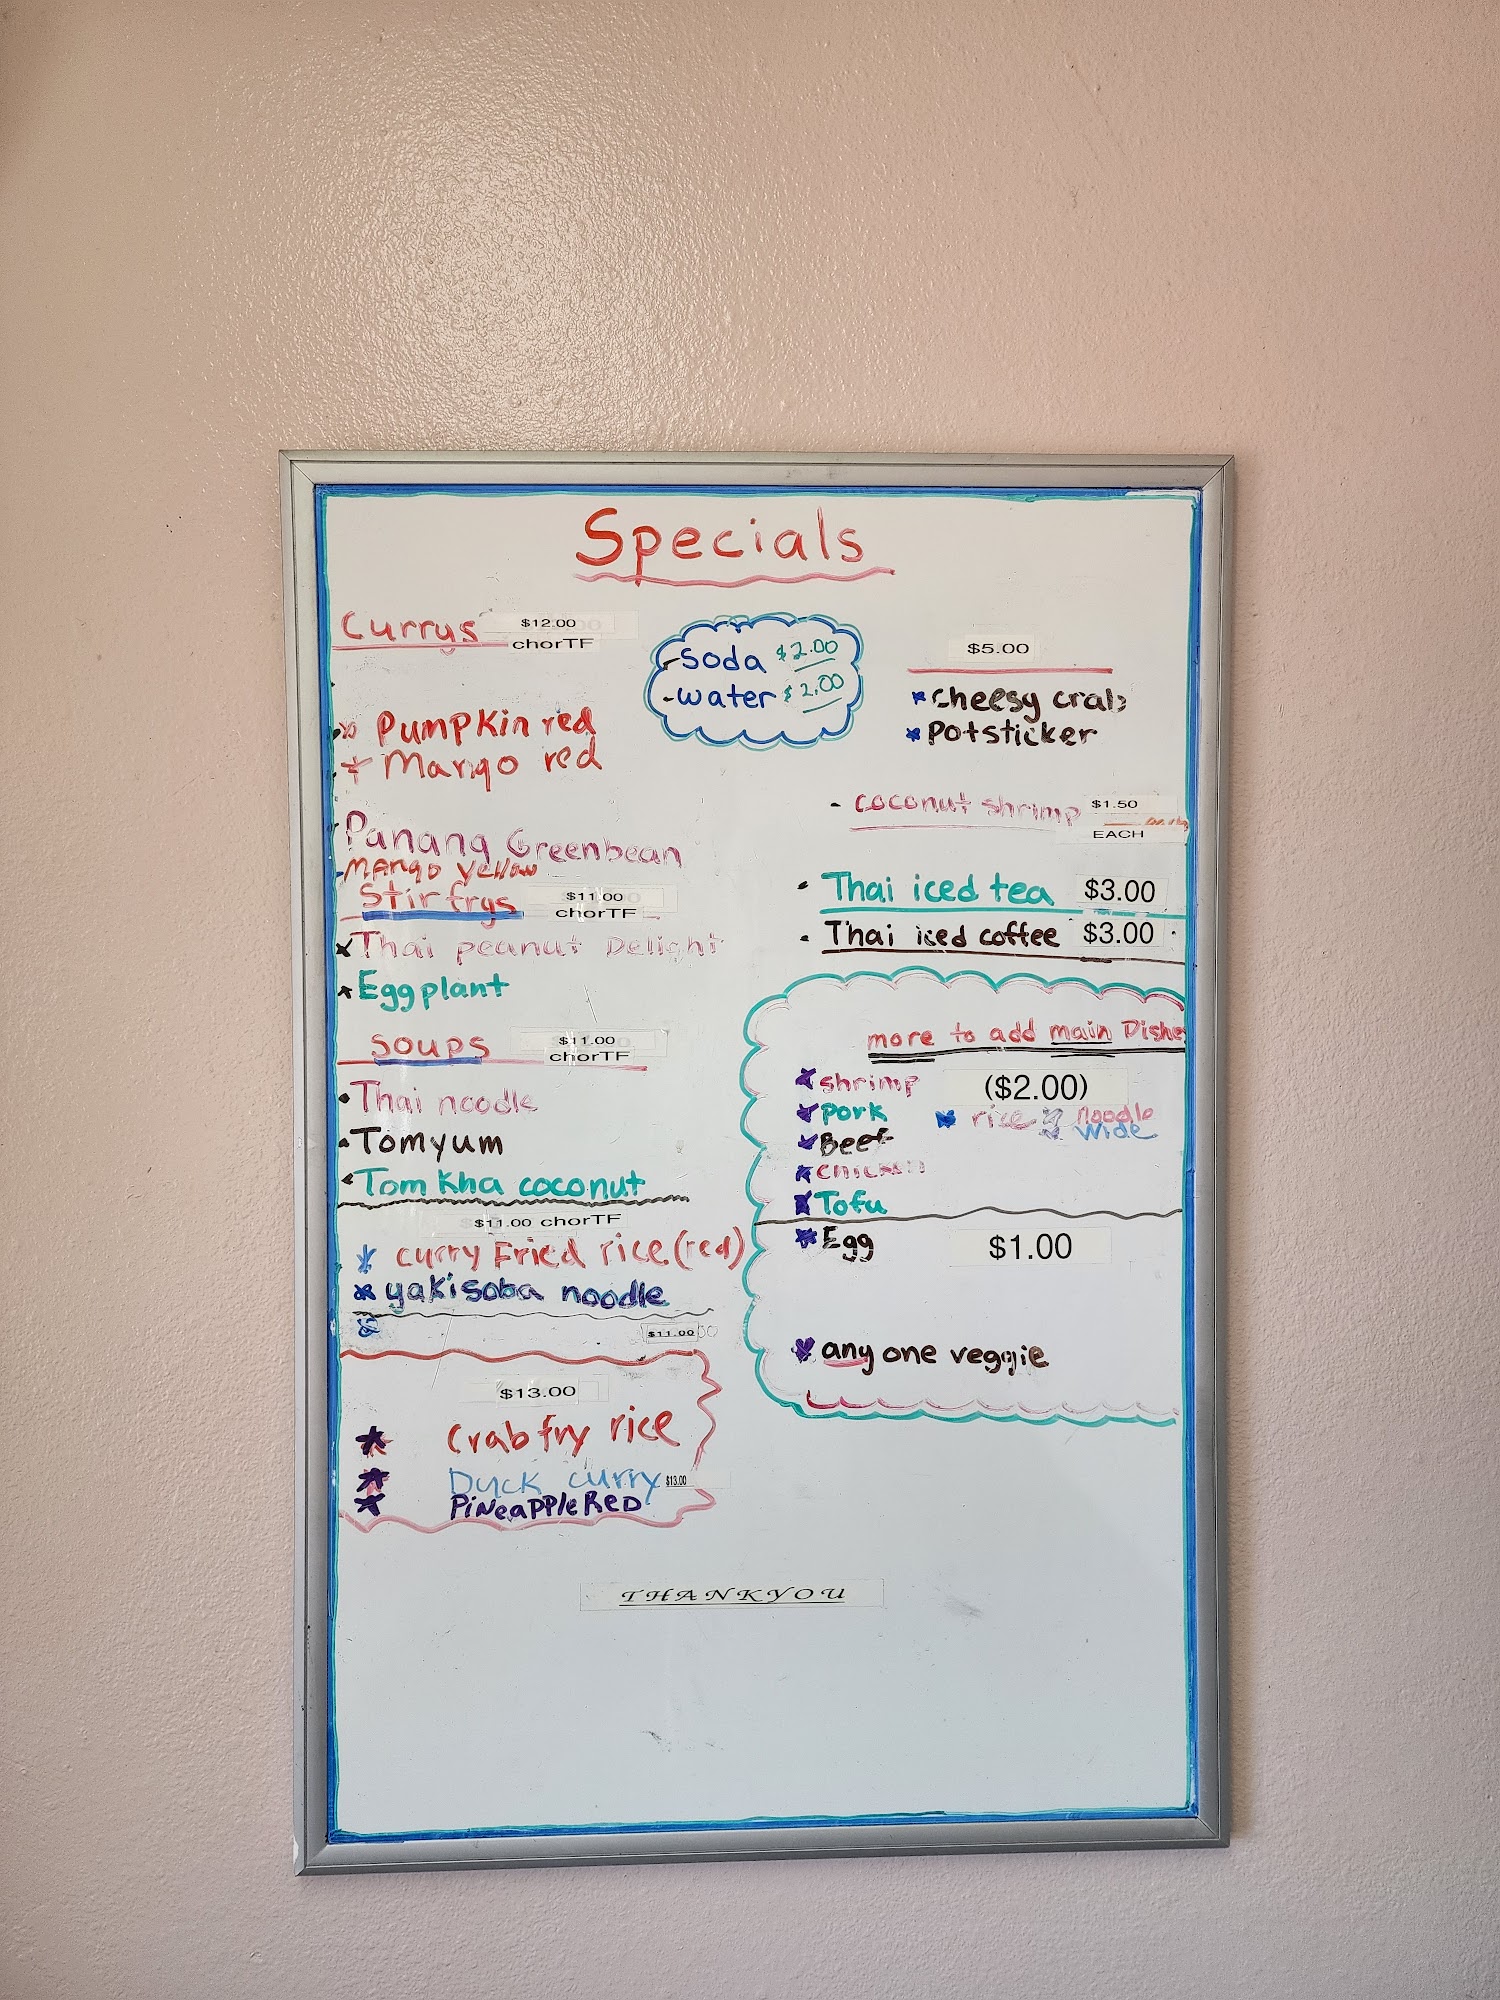 Specials
Currys $12.00
chorTF
Pumpkin red
Mango red
Panang Greenbean
Mango Yellow
Stir frys $11.00
chorTF
Thai peanut Delight
Eggplant
Soups $11.00
chorTF
Thai noodle
Tomyum
Tom Kha coconut
$11.00 chorTF
curry Fried rice (red)
yakisoba noodle
$11.00
$13.00
Crab fry rice
Duck curry $13.00
PiNeaPPle ReD
- Soda $2.00
- water $2.00
$5.00
Cheesy crab
Potsticker
- coconut shrimp $1.50
EACH
Thai iced tea $3.00
Thai iced coffee $3.00
more to add main Dishes
shrimp ($2.00)
Pork rice noodle
wide
Beef
chicken
Tofu
Egg $1.00
any one veggie
THANKYOU